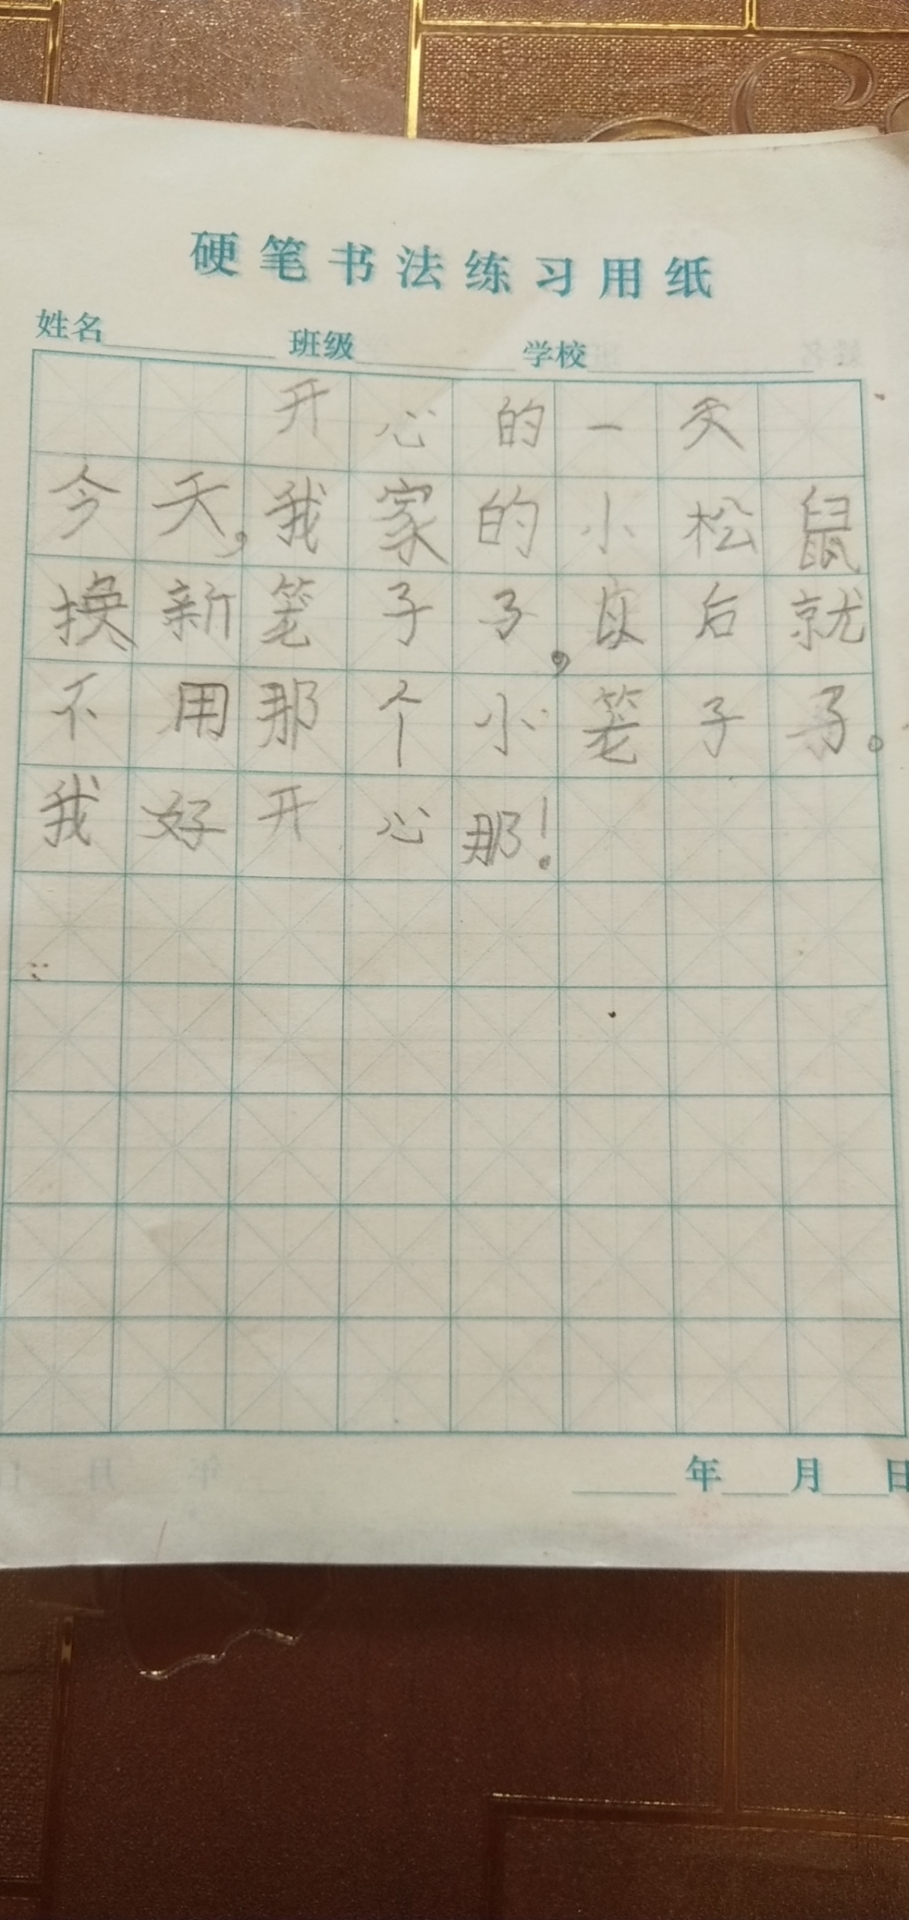 硬笔书法练习用纸
姓名 班级 学校
开心的一天
今天,我家的小松鼠
换新笼子了,以后就
不用那个小笼子了。
我好开心那!
年 月 日